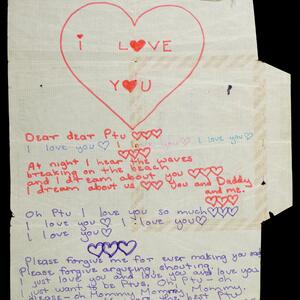 i LOVE
YOU
Dear dear Ptu ♡♡♡
I love you ♡ I love you ♡ I love you ♡
♡♡♡
At night I hear the waves
breaking on the beach
and I dream about you ♡♡♡
I dream about us ♡♡ you and Daddy
and me. ♡♡♡
Oh Ptu I love you so much ♡♡♡
I love you ♡ I love you ♡
I love you ♡
♡♡♡
Please forgive me for ever making you
Please forgive arguing, shouting.
I just love you and love you and love you.
I just want to be Ptus, Oh Ptu - oh
please - oh Mommy, Mommy, Mommy.
the best Ptu